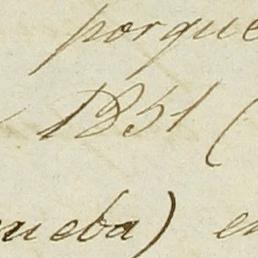 porque
1851 (
ueba) en